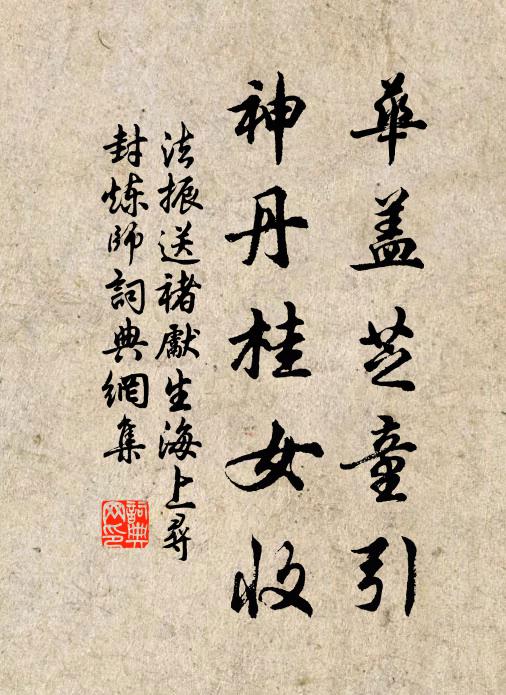 華盖芝童引
神丹桂女收
法振送褚獻生海上尋
封煉师詞典網集
詞典
网印